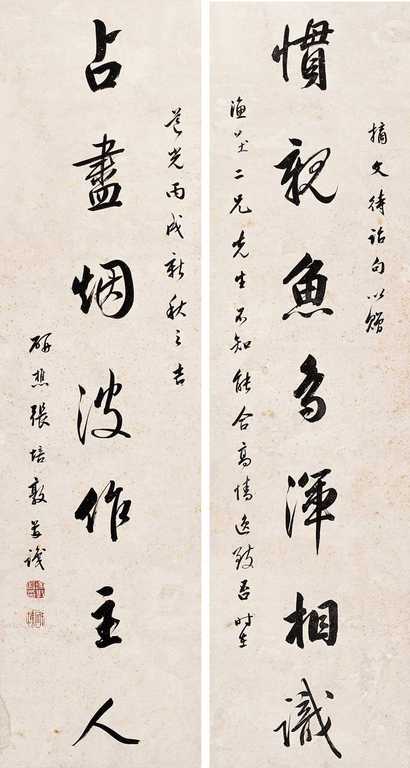 摘文待詔句以贈
慣親魚鳥渾相識
漁二兄先生不知能合高情逸致否时在
道光丙戌新秋之吉
占盡烟波作主人
研樵張培敦并識